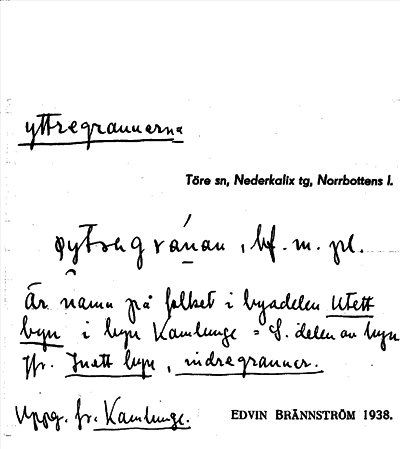 yttregrannerna
Töre sn, Nederkalix tg, Norrbottens l.
bf. m. pl.
Är namn på folket i byadelen Utett
byn i byn Kamlunge = S. delen av byn
jfr. Inett byn, indregranner.
Uppg. fr. Kamlunge. EDVIN BRÄNNSTRÖM 1938.